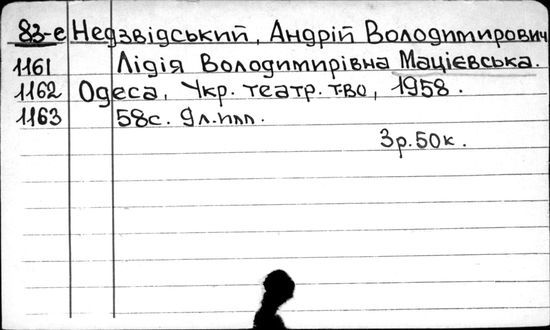 83-е Недзвідський, Андрій Володимирович
1161 Лідія Володимирівна Мацієвська.
1162 Одеса, Укр. театр. т-во, 1958.
1163 58с. 9л.ілл.
3р.50к.